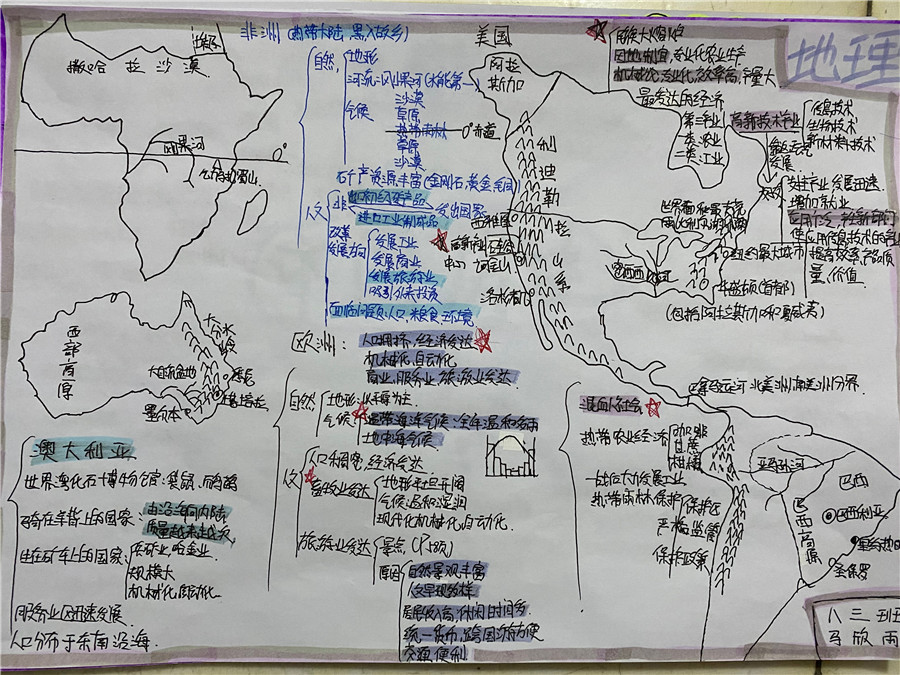 非洲 (热带大陆,黑人故乡)
自然
地形
河流:刚果河(水能第一)
气候
沙漠
草原
热带雨林 0°赤道
草原
沙漠
矿产资源丰富(金刚石,黄金
人文
出口初级产品
进口工业制成品
发达国家
改革
发展方向
发展工业
发展商业
发展旅游业
吸引外来投资
面临问题:人口 粮食 环境
撒哈拉沙漠
刚果河
0°
乞力马扎罗山
美国
阿拉
斯加
民族大熔炉
因地制宜,专业化农业生产
机械化,专业化,效率高,产量大
最发达的经济
第三产业
一类:农业
二类:工业
高新技术产业
信息技术
生物技术
新材料技术
发展
增加就业
提高效率,产品质
量,价值
科
迪
勒
拉
山
系
西雅图
高新产业
中心
旧金山
洛杉矶
密西西比河
纽约最大城市
华盛顿(首都)
(包括阿拉斯加和夏威夷)
地理
西部高原
大分水岭
大自流盆地
悉尼
堪培拉
墨尔本
澳大利亚
世界活化石博物馆:袋鼠、鸸鹋
骑在羊背上的国家:
由沿海向内陆
质量越来越
坐在矿车上的国家:
采矿业,冶金业
规模大
机械化,自动化
服务业迅速发展
人口分布于东南沿海
欧洲:
人口稠密,经济发达
机械化,自动化
商业,服务业,旅游业发达
自然
地形:平原为主
气候
温带海洋气候:全年温和多雨
地中海气候
人文
人口稠密,经济发达
畜牧业发达
地形平坦开阔
气候温和湿润
现代化,机械化,自动化.
旅游业发达
景点 (P58页)
原因
自然景观丰富
人文景观多样
居民收入高,休闲时间多
统一货币,跨国旅行方便
交通便利
巴拿马运河 北美洲南美洲分界
混血人社会
热带农业经济
咖啡
甘蔗
柑橘
大力发展工业
热带雨林保护
保护区
严格监管
保护政策
亚马孙河
巴西
巴西高原
巴西利亚
里约热
圣保罗
八三班
马欣雨